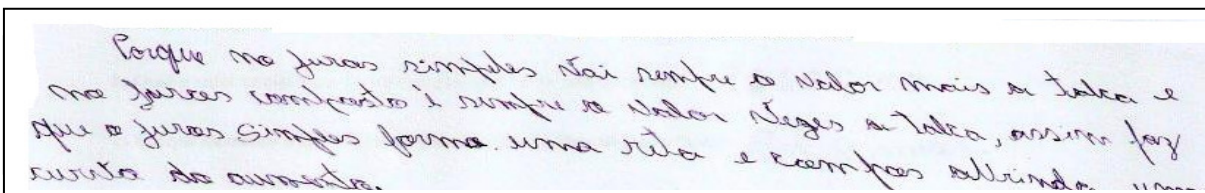 Porque no juros simples vai sempre o valor mais a taxa e
no juros composto é sempre o valor vezes a taxa, assim faz
que o juros simples forma uma reta e compos abrindo uma
curva do aumento.